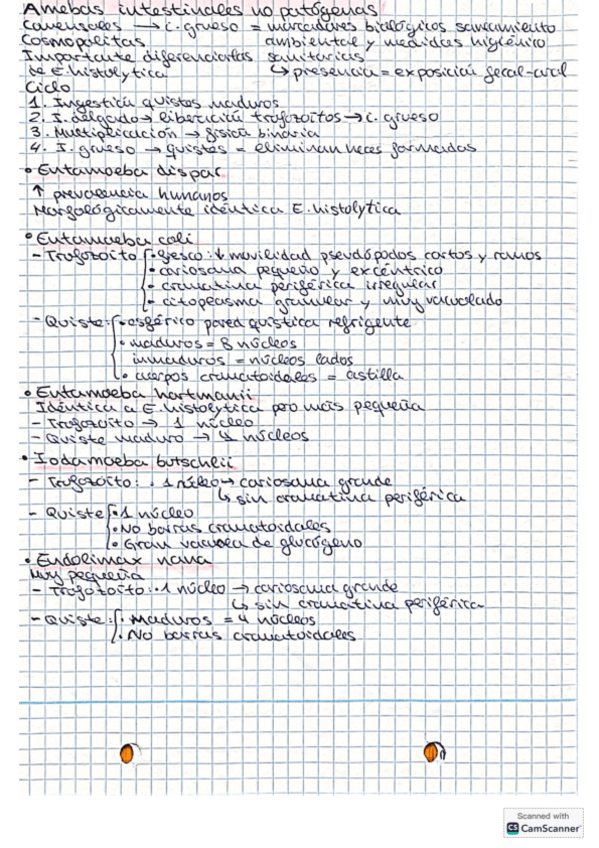 Amebas intestinales no patógenas
Comensales → i. grueso = marcadores biológicos saneamiento
Cosmopolitas ambiental y medidas higiénico
Importante diferenciarlas sanitarias
de E. histolytica ↳ presencia = exposición fecal-oral
Ciclo
1. Ingestión quistes maduros
2. I. delgado → liberación trofozoitos → i. grueso
3. Multiplicación → fisión binaria
4. I. grueso → quistes = eliminan heces formadas
• Entamoeba dispar
↑ prevalencia humanos
Morfológicamente idéntica E. histolytica
• Entamoeba coli
- Trofozoito • fresco: ↓ movilidad pseudópodos cortos y romos
• cariosoma pequeño y excéntrico
• cromatina periférica irregular
• citoplasma granular y muy vacuolado
- Quiste: • esférico pared quística refrigente
• maduros = 8 núcleos
inmaduros = núcleos lados
• cuerpos cromatoidales = astilla
• Entamoeba hartmanii
Idéntica a E. histolytica pero más pequeña
- Trofozoito → 1 núcleo
- Quiste maduro → 4 núcleos
• Iodamoeba butschlii
- Trofozoito: • 1 núcleo → cariosoma grande
↳ sin cromatina periférica
- Quiste • 1 núcleo
• No barras cromatoidales
• Gran vacuola de glucógeno
• Endolimax nana
Muy pequeña
- Trofozoito: • 1 núcleo → cariosoma grande
↳ sin cromatina periférica
- Quiste: • maduros = 4 núcleos
• No barras cromatoidales
Scanned with
CS CamScanner